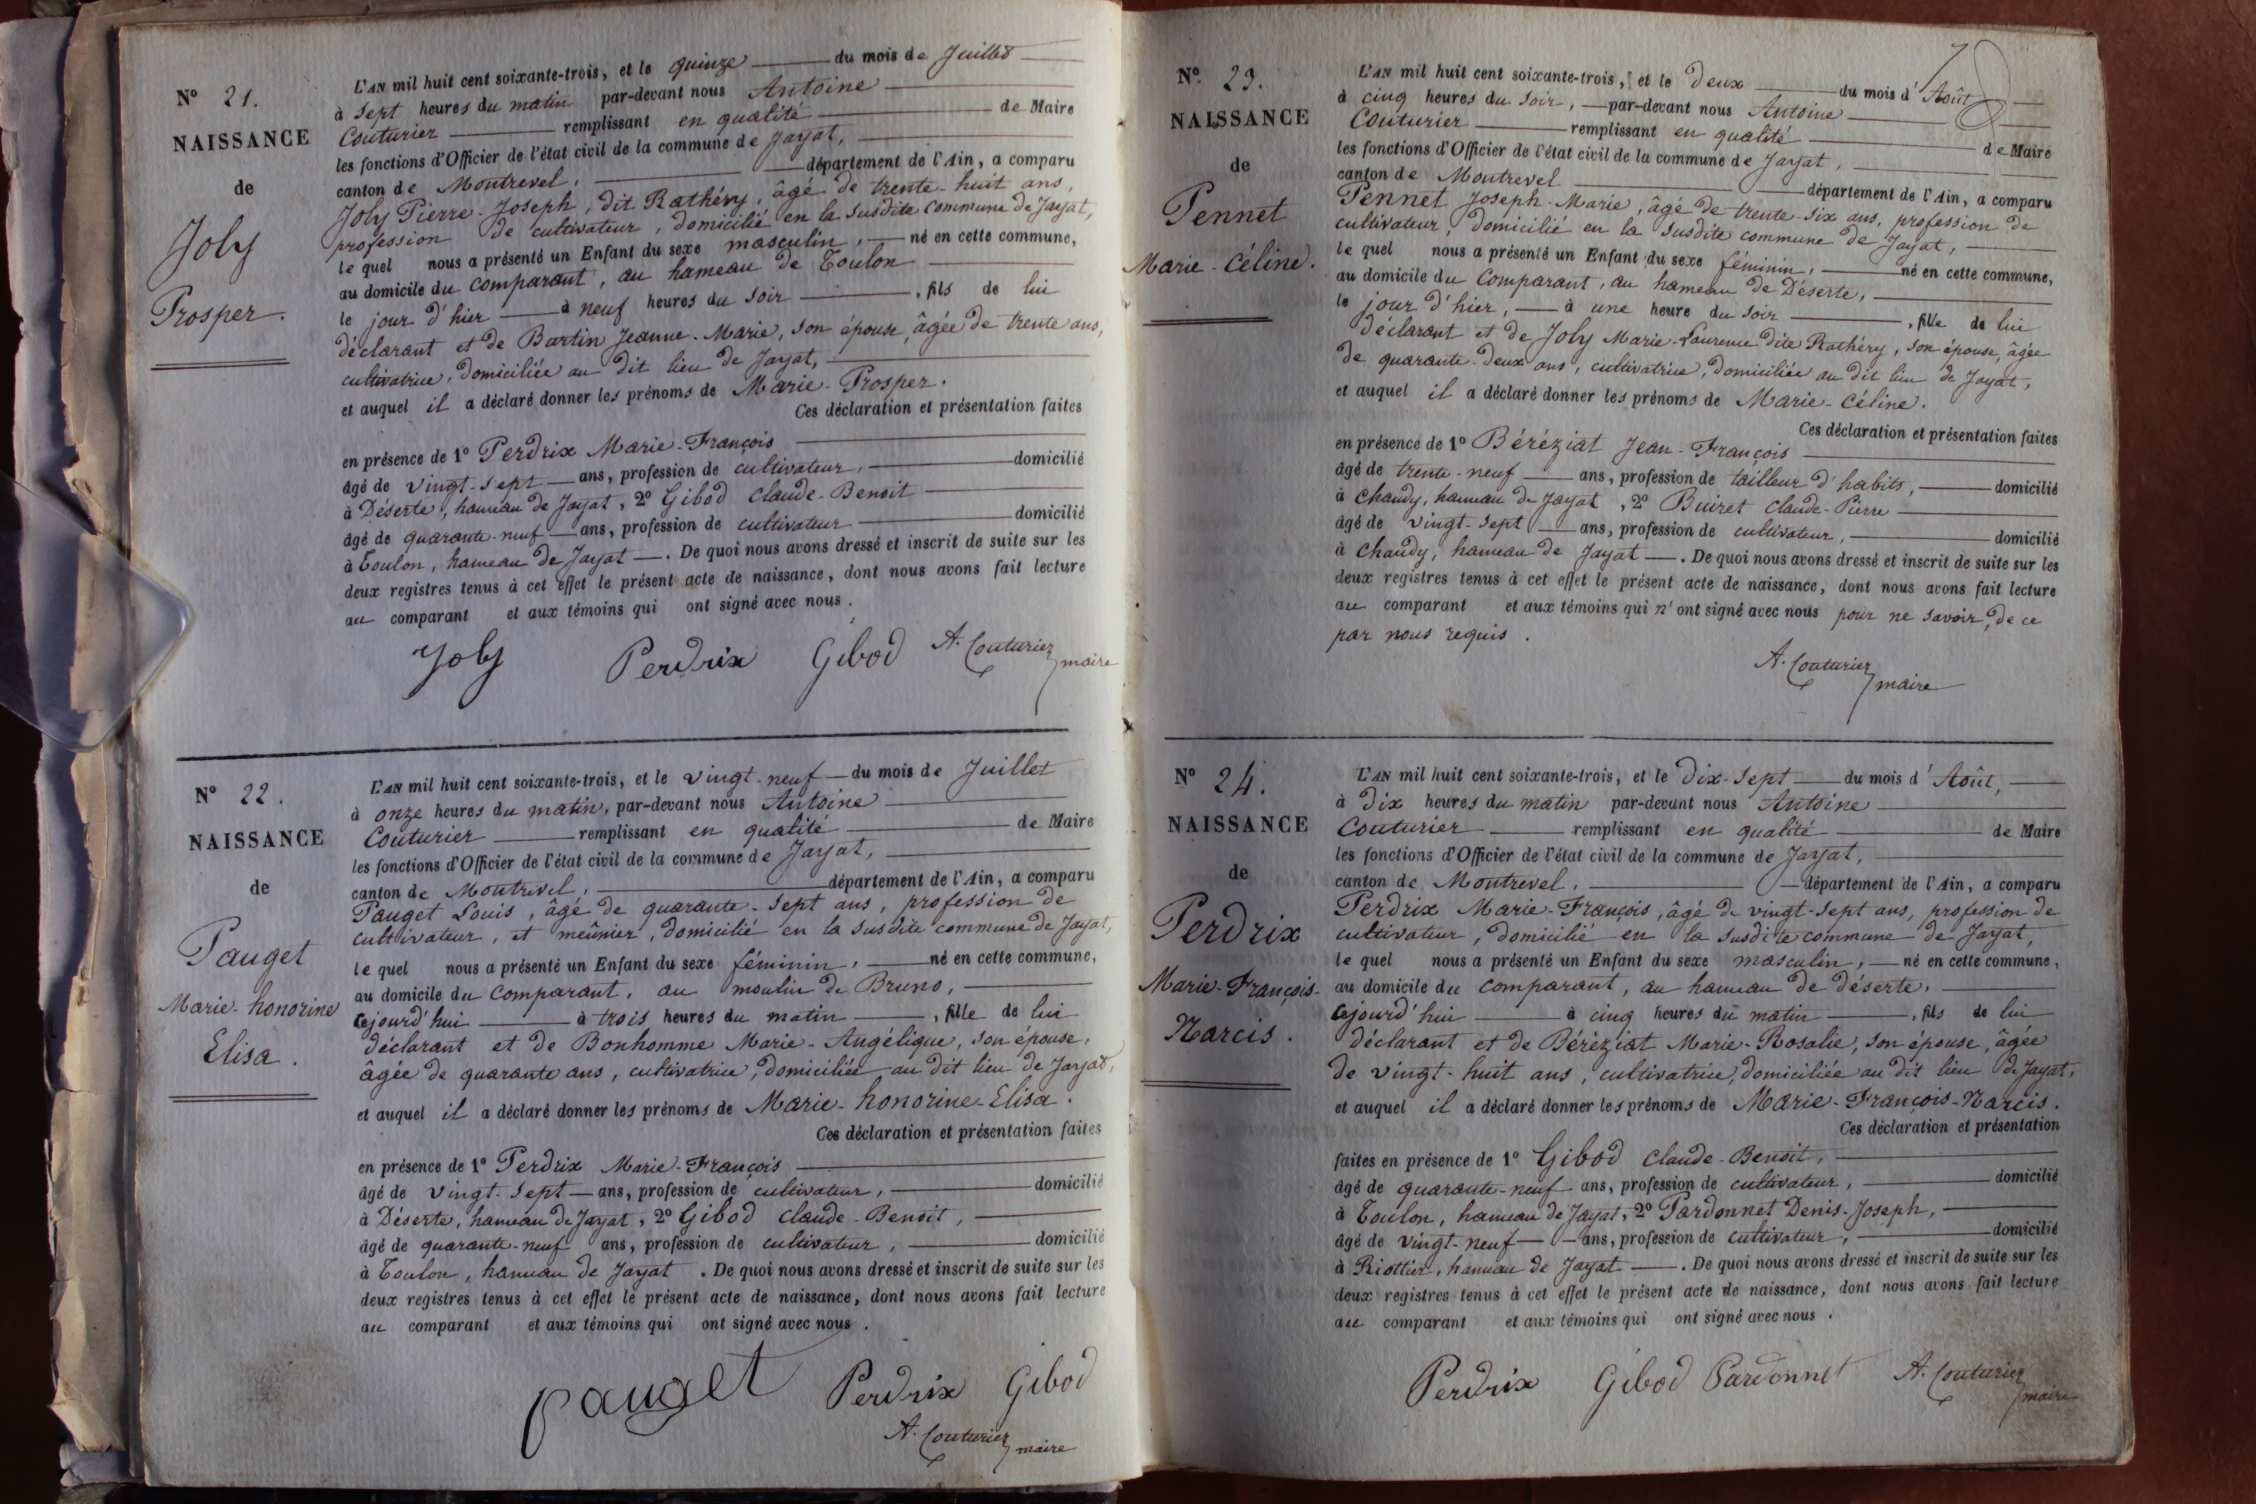 N° 21.
NAISSANCE
de
Joly
Prosper.
L'AN mil huit cent soixante-trois, et le quinze du mois de Juillet
à sept heures du matin par-devant nous Antoine
Couturier remplissant en qualité de Maire
les fonctions d'Officier de l'état civil de la commune de Jayat,
canton de Montrevel, département de l'Ain, a comparu
Joly Pierre-Joseph, dit Rathéry, âgé de trente-huit ans,
profession de cultivateur, domicilié en la susdite commune de Jayat,
le quel nous a présenté un Enfant du sexe masculin, né en cette commune,
au domicile du comparant, au hameau de Toulon
le jour d'hier à neuf heures du soir, fils de lui
déclarant et de Bartin Jeanne-Marie, son épouse, âgée de trente ans,
cultivatrice, domiciliée au dit lieu de Jayat,
et auquel il a déclaré donner les prénoms de Marie-Prosper.
Ces déclaration et présentation faites
en présence de 1° Perdrix Marie-François
âgé de vingt-sept ans, profession de cultivateur, domicilié
à Déserte, hameau de Jayat, 2° Gibod Claude-Benoit
âgé de quarante-neuf ans, profession de cultivateur domicilié
à Toulon, hameau de Jayat. De quoi nous avons dressé et inscrit de suite sur les
deux registres tenus à cet effet le présent acte de naissance, dont nous avons fait lecture
au comparant et aux témoins qui ont signé avec nous.
Joly Perdrix Gibod A. Couturier maire
N° 22.
NAISSANCE
de
Pauget
Marie-honorine
Elisa.
L'AN mil huit cent soixante-trois, et le vingt-neuf du mois de Juillet
à onze heures du matin, par-devant nous Antoine
Couturier remplissant en qualité de Maire
les fonctions d'Officier de l'état civil de la commune de Jayat,
canton de Montrevel, département de l'Ain, a comparu
Pauget Louis, âgé de quarante-sept ans, profession de
cultivateur, et meûnier, domicilié en la susdite commune de Jayat,
le quel nous a présenté un Enfant du sexe féminin, né en cette commune,
au domicile du comparant, au moulin de Bruno,
cejourd'hui à trois heures du matin, fille de lui
déclarant et de Bonhomme Marie-Angélique, son épouse,
âgée de quarante ans, cultivatrice, domiciliée au dit lieu de Jayat,
et auquel il a déclaré donner les prénoms de Marie-honorine-Elisa.
Ces déclaration et présentation faites
en présence de 1° Perdrix Marie-François
âgé de vingt-sept ans, profession de cultivateur, domicilié
à Déserte, hameau de Jayat, 2° Gibod Claude-Benoit,
âgé de quarante-neuf ans, profession de cultivateur, domicilié
à Toulon, hameau de Jayat. De quoi nous avons dressé et inscrit de suite sur les
deux registres tenus à cet effet le présent acte de naissance, dont nous avons fait lecture
au comparant et aux témoins qui ont signé avec nous.
Pauget Perdrix Gibod
A. Couturier maire
N° 23.
NAISSANCE
de
Pennet
Marie-Céline.
L'AN mil huit cent soixante-trois, et le deux du mois d'Août
à cinq heures du soir, par-devant nous Antoine
Couturier remplissant en qualité de Maire
les fonctions d'Officier de l'état civil de la commune de Jayat,
canton de Montrevel département de l'Ain, a comparu
Pennet Joseph-Marie, âgé de trente-six ans, profession de
cultivateur, domicilié en la susdite commune de Jayat,
le quel nous a présenté un Enfant du sexe féminin, né en cette commune,
au domicile du comparant, au hameau de Déserte,
le jour d'hier, à une heure du soir, fille de lui
déclarant et de Joly Marie-Laurence dite Rathéry, son épouse, âgée
de quarante-deux ans, cultivatrice, domiciliée au dit lieu de Jayat,
et auquel il a déclaré donner les prénoms de Marie-Céline.
Ces déclaration et présentation faites
en présence de 1° Béréziat Jean-François
âgé de trente-neuf ans, profession de tailleur d'habits, domicilié
à Chaudy, hameau de Jayat, 2° Buiret Claude-Pierre
âgé de vingt-sept ans, profession de cultivateur, domicilié
à Chaudy, hameau de Jayat. De quoi nous avons dressé et inscrit de suite sur les
deux registres tenus à cet effet le présent acte de naissance, dont nous avons fait lecture
au comparant et aux témoins qui n'ont signé avec nous pour ne savoir, de ce
par nous requis.
A. Couturier maire
N° 24.
NAISSANCE
de
Perdrix
Marie-François-
Narcis.
L'AN mil huit cent soixante-trois, et le dix-sept du mois d'Août,
à dix heures du matin par-devant nous Antoine
Couturier remplissant en qualité de Maire
les fonctions d'Officier de l'état civil de la commune de Jayat,
canton de Montrevel, département de l'Ain, a comparu
Perdrix Marie-François, âgé de vingt-sept ans, profession de
cultivateur, domicilié en la susdite commune de Jayat,
le quel nous a présenté un Enfant du sexe masculin, né en cette commune,
au domicile du comparant, au hameau de déserte,
cejourd'hui à cinq heures du matin, fils de lui
déclarant et de Béréziat Marie-Rosalie, son épouse, âgée
de vingt-huit ans, cultivatrice, domiciliée au dit lieu de Jayat,
et auquel il a déclaré donner les prénoms de Marie-François-Narcis.
Ces déclaration et présentation
faites en présence de 1° Gibod Claude-Benoit,
âgé de quarante-neuf ans, profession de cultivateur, domicilié
à Toulon, hameau de Jayat, 2° Pardonnet Denis-Joseph,
âgé de vingt-neuf ans, profession de cultivateur, domicilié
à Riottier, hameau de Jayat. De quoi nous avons dressé et inscrit de suite sur les
deux registres tenus à cet effet le présent acte de naissance, dont nous avons fait lecture
au comparant et aux témoins qui ont signé avec nous.
Perdrix Gibod Pardonnet A. Couturier maire